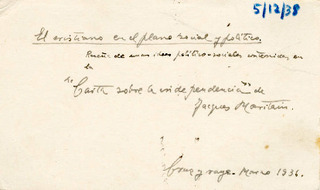 5/12/38
El cristiano en el plano social y político
Reseña de unas ideas político-sociales contenidas en
la
"Carta sobre la independencia" de
Jacques Maritain.
Cruz y raya. Marzo 1936.